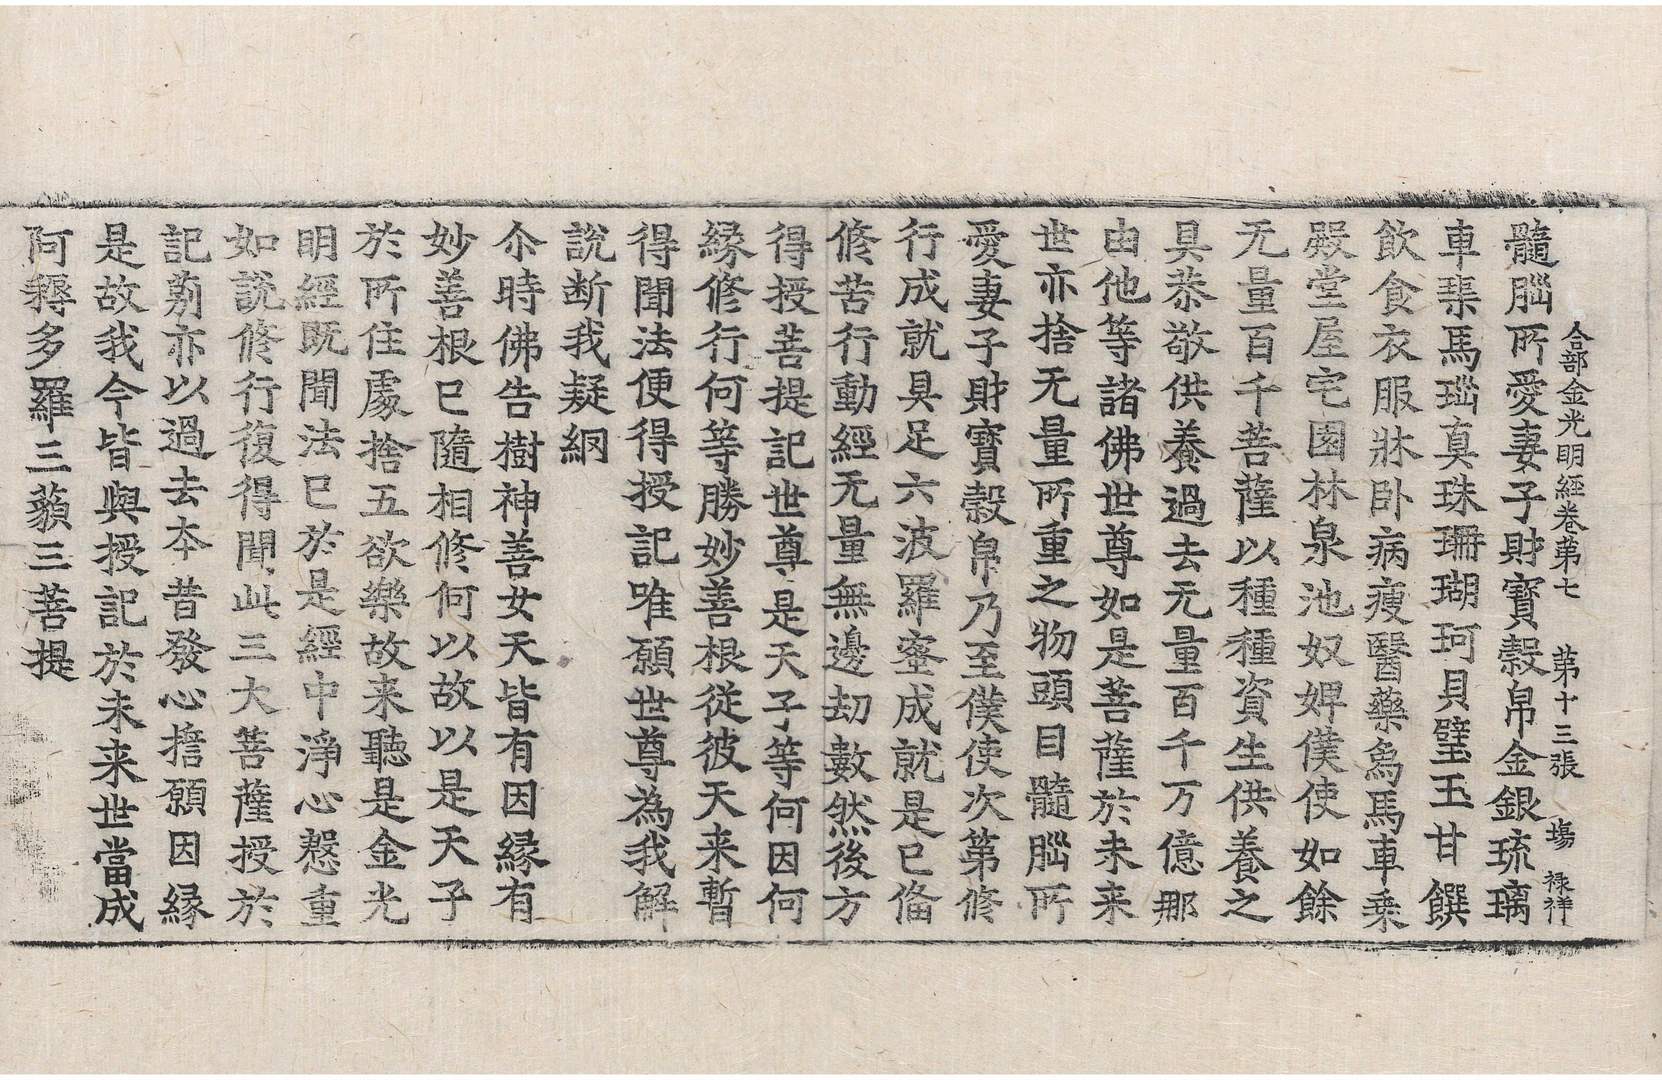 合部金光明經卷苐七　苐十三張　塲　禄祥
髓腦所愛妻子財寶穀帛金銀琉璃
車𤦲馬瑙真珠珊瑚珂貝璧玉甘饌
飲食衣服牀卧病瘦醫藥爲馬車乗
殿堂屋宅園林泉池奴婢僕使如餘
无量百千菩薩以種種資生供養之
具恭敬供養過去无量百千万億那
由他等諸佛世尊如是菩薩於未来
世亦捨无量所重之物頭目髓腦所
愛妻子財寶穀帛乃至僕使次第修
行成就具足六波羅蜜成就是已俻
修苦行動經无量無邊劫數然後方
得授菩提記世尊是天子等何因何
縁修行何等勝妙善根從彼天来暫
得聞法便得授記唯願世尊為我解
說断我疑網
尒時佛告樹神善女天皆有因縁有
妙善根已隨相修何以故以是天子
於所住處捨五欲樂故来聽是金光
明經既聞法已於是經中淨心慇重
如說修行復得聞此三大菩薩授於
記莂亦以過去本昔發心擔願因縁
是故我今皆與授記於未来世當成
阿耨多羅三藐三菩提